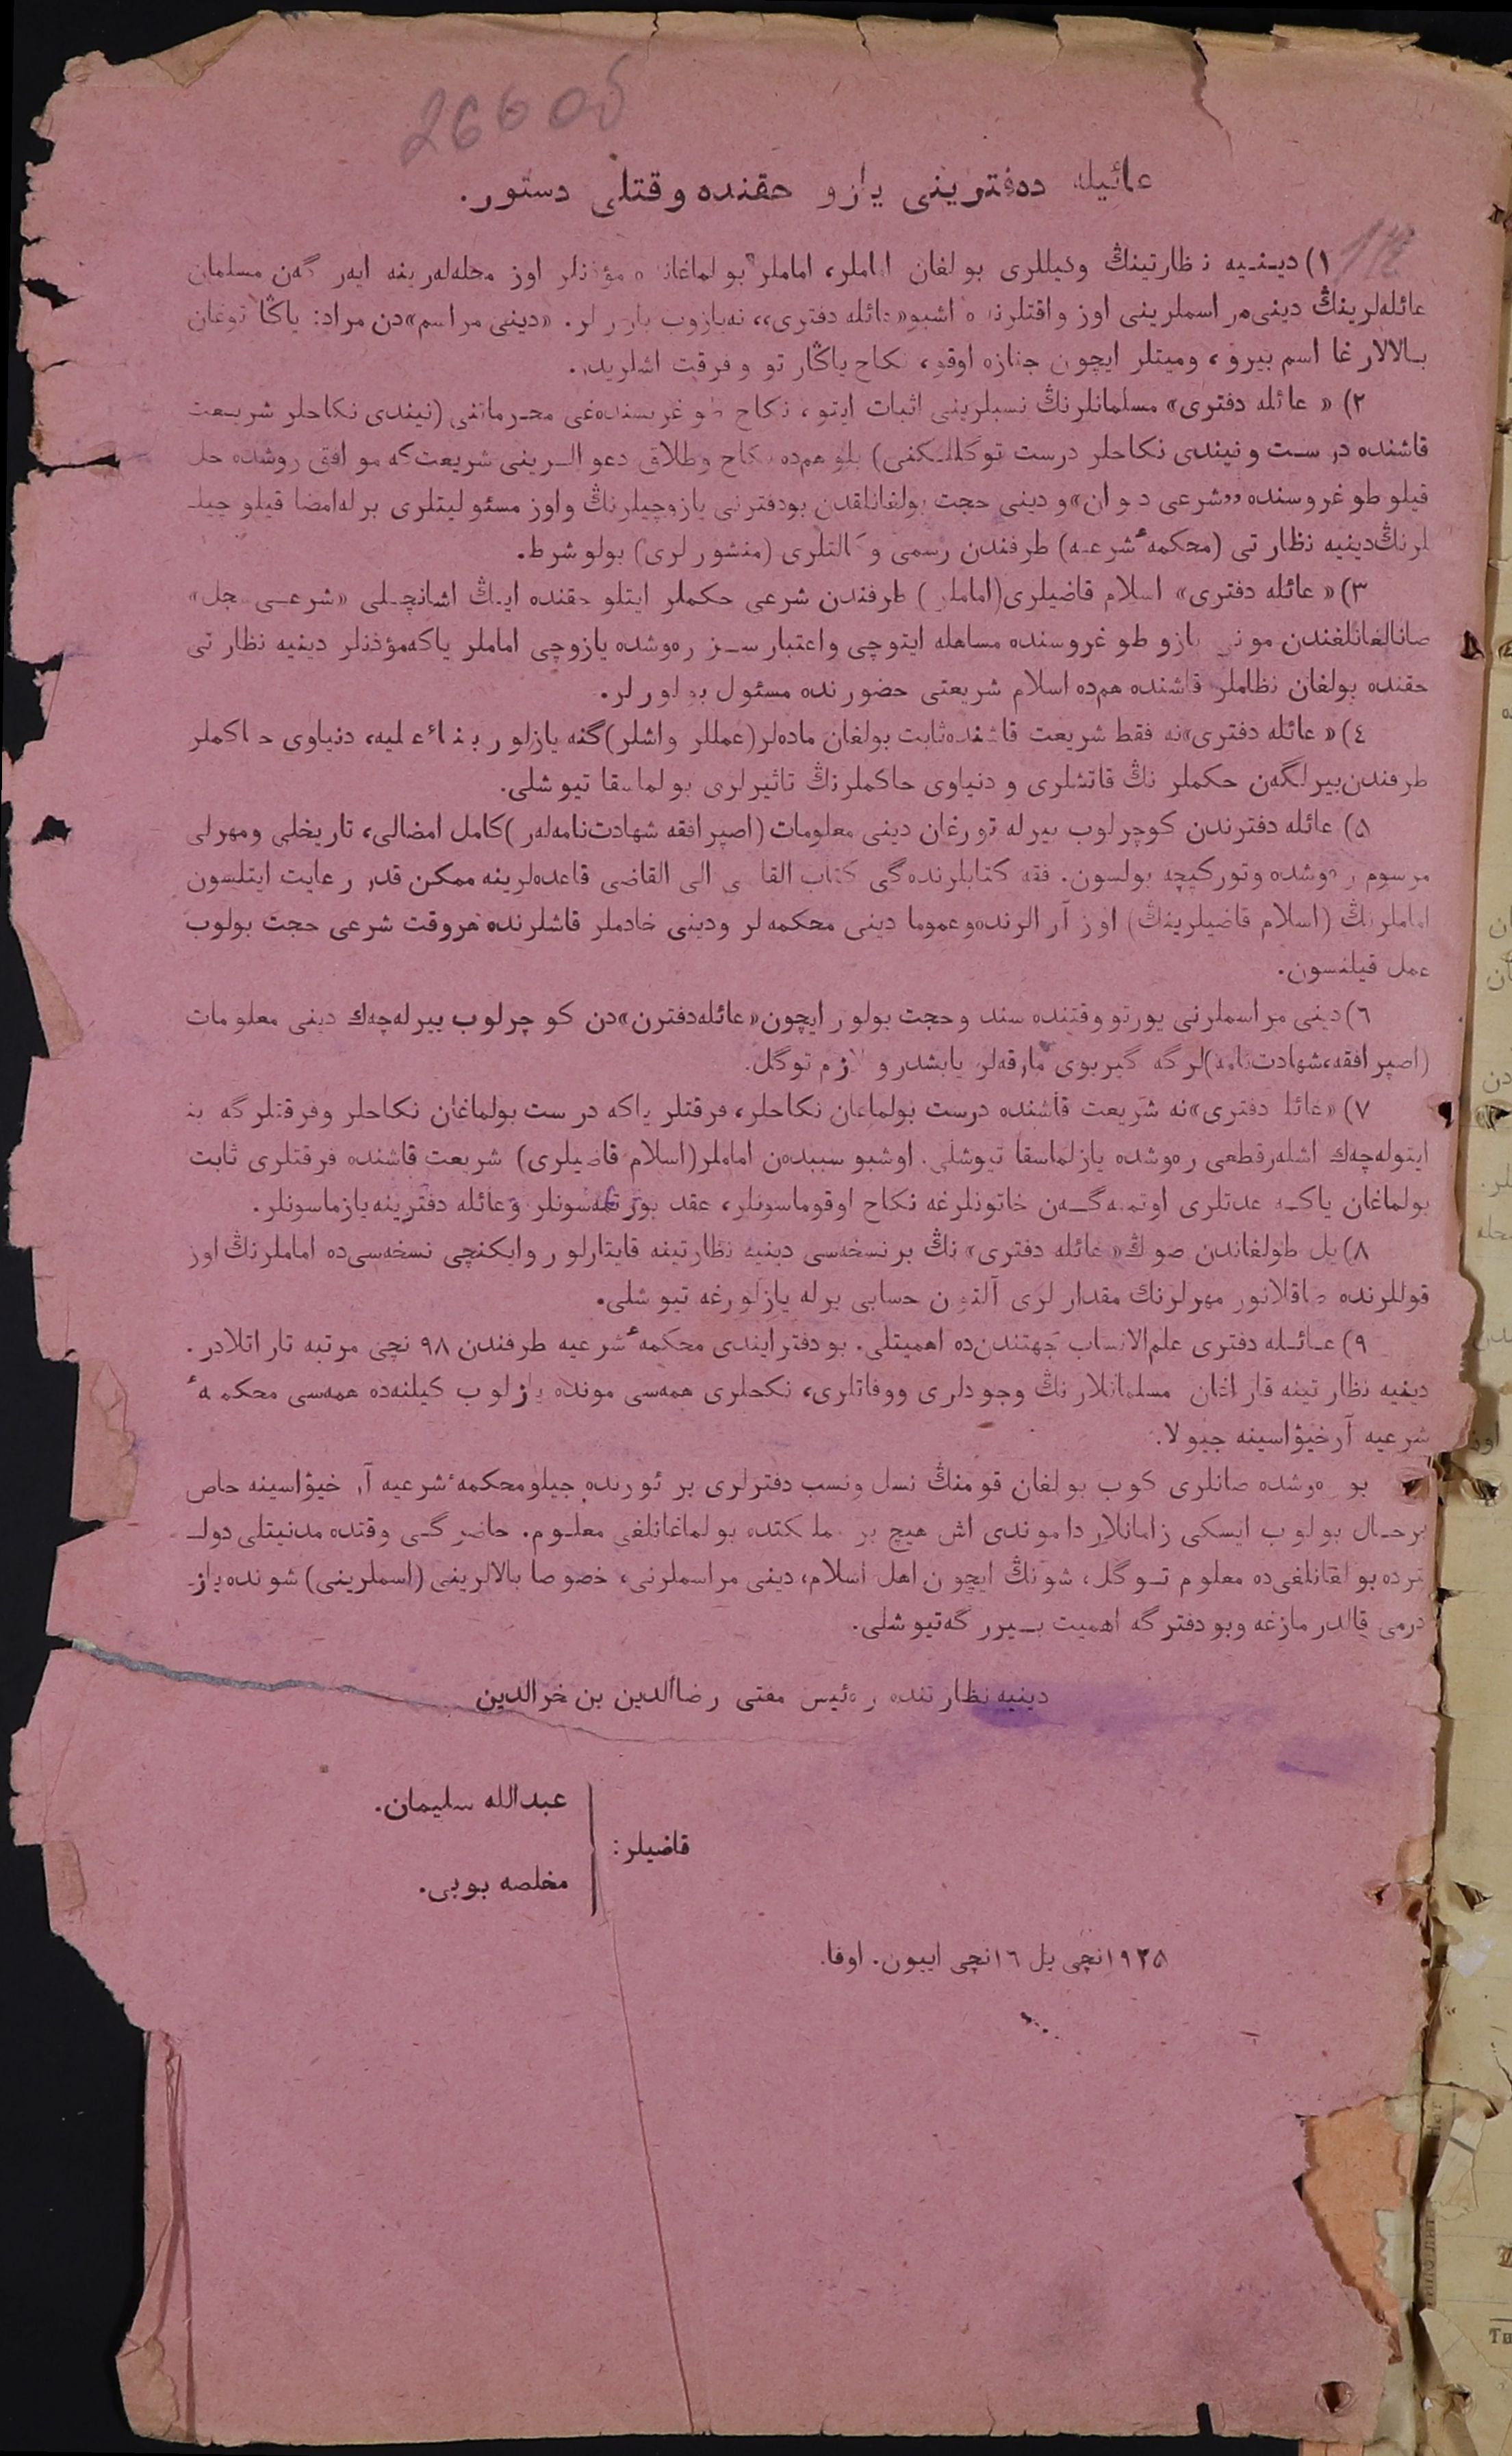 26606
عائیله دەفترینی یازو حقنده وقتلی دستور.
114
۱) دینیه نظارتینڭ وکیللری بولغان اماملر، اماملر بولماغانده مؤذنلر اوز محله‌لرینه ایەرگەن مسلمان
عائله‌لرینڭ دینی مراسملرینی اوز واقتلرنده اشبو «عائله دفتری» نه یازوب بارورلر. «دینی مراسم» دن مراد: یاڭا توغان
بالالارغا اسم بیرو، ومیتلر ایچون جنازه اوقو، نکاح یاڭارتو و فرقت اشلریدر.
۲) « عائله دفتری» مسلمانلرنڭ نسبلرینی اثبات ایتو، نکاح طوغریسنده‌غی محرماتنی (نیندی نکاحلر شریعت
قاشنده درست و نیندی نکاحلر درست توگللکنی) بلو هم‌ده نکاح وطلاق دعوالرینی شریعت‌که موافق روشده حل
قیلو طوغروسنده «شرعی دیوان» و دینی حجت بولغانلقدن بودفترنی یازوچیلرنڭ واوز مسئولیتلری برله‌امضا قیلوچیلـ
لرنڭ‌دینیه نظارتی (محکمهٔ شرعیه) طرفندن رسمی وکالتلری (منشورلری) بولو شرط.
۳) « عائله دفتری» اسلام قاضیلری (اماملر) طرفندن شرعی حکملر ایتلو حقنده ایڭ اشانچلی «شرعی سجل»
صانالغانلغندن مونی یازو طوغروسنده مساهله ایتوچی واعتبارسز رەوشده یازوچی اماملر یاکه‌مؤذنلر دینیه نظارتی
حقنده بولغان نظاملر قاشنده هم‌ده اسلام شریعتی حضورنده مسئول بولورلر.
٤) « عائله دفتری» نه فقط شریعت قاشنده‌ثابت بولغان ماده‌لر (عمللر واشلر) گنه یازلور بناءً علیه، دنیاوی حاکملر
طرفندن‌بیرلگەن حکملرنڭ قاتشلری و دنیاوی حاکملرنڭ تاثیرلری بولماسقا تیوشلی.
۵) عائله دفترندن کوچرلوب بیرله تورغان دینی معلومات (اصپرافقه شهادت‌نامه‌لەر) کامل امضالی، تاریخلی ومهرلی
مرسوم رەوشده وتورکیچه بولسون. فقه کتابلرنده‌گی کتاب القاضی الی القاضی قاعده‌لرینه ممکن قدر رعایت ایتلسون
اماملرنڭ (اسلام قاضیلرینڭ) اوز آرالرنده‌وعموما دینی محکمه‌لر ودینی خادملر قاشلرنده هروقت شرعی حجت بولوب
عمل قیلنسون.
٦) دینی مراسملرنی یورتو وقتنده سند وحجت بولور ایچون «عائله‌دفترن» دن کوچرلوب بیرله‌چەك دینی معلومات
(اصپرافقه، شهادت‌نامه) لرگه گیربوی مارقه‌لر یابشدرو لازم توگل.
۷) « عائله دفتری» نه شریعت قاشنده درست بولماغان نکاحلر، فرقتلر یاکه درست بولماغان نکاحلر وفرقتلرگه بنا
ایتوله‌چەك اشلەرقطعی رەوشده یازلماسقا تیوشلی. اوشبو سببدەن اماملر (اسلام قاضیلری) شریعت قاشنده فرقتلری ثابت
بولماغان یاکه عدتلری اوتمه‌گەن خاتونلرغه نکاح اوقوماسونلر، عقد یورتمەسونلر وعائله دفترینه‌یازماسونلر.
۸) یل طولغاندن صوڭ « عائله دفتری» نڭ برنسخه‌سی دینیه نظارتینه قایتارلور وایکنچی نسخه‌سی‌ده اماملرنڭ اوز
قوللرنده صاقلانور مهرلرنك مقدارلری آلتون حسابی برله یازلورغه تیوشلی.
۹) عائله دفتری علم‌الانساب جهتندن‌ده اهمیتلی. بو دفتر ایندی محکمهٔ شرعیه طرفندن ۹۸ نچی مرتبه تاراتلادر.
دینیه نظارتینه قاراغان مسلمانلارنڭ وجودلری ووفاتلری، نکحلری همه‌سی مونده یازلوب کیلنه‌ده همه‌سی محکمهٔ
شرعیه آرخیۋاسینه جیولا.
بو رەوشده صانلری کوب بولغان قومنڭ نسل ونسب دفترلری بر ئورنده جیلومحکمهٔ شرعیه آرخیۋاسینه خاص
برحال بولوب ایسکی زامانلاردا موندی اش هیچ بر مملکتده بولماغانلغی معلوم. حاضرگی وقتده مدنیتلی دولـ
تلرده بولقانلغی‌ده معلوم توگل، شونڭ ایچون اهل اسلام، دینی مراسملرنی، خصوصا بالالرینی (اسملرینی) شونده‌یازـ
درمی قالدرمازغه وبو دفترگه اهمیت بیررگه‌تیوشلی.
دینیه نظارتنده رەئیس مفتی رضاالدین بن خرالدین
قاضیلر:
عبدالله سلیمان.
مخلصه بوبی.
۱۹۲۵نچی یل ۱٦نچی اییون. اوفا.